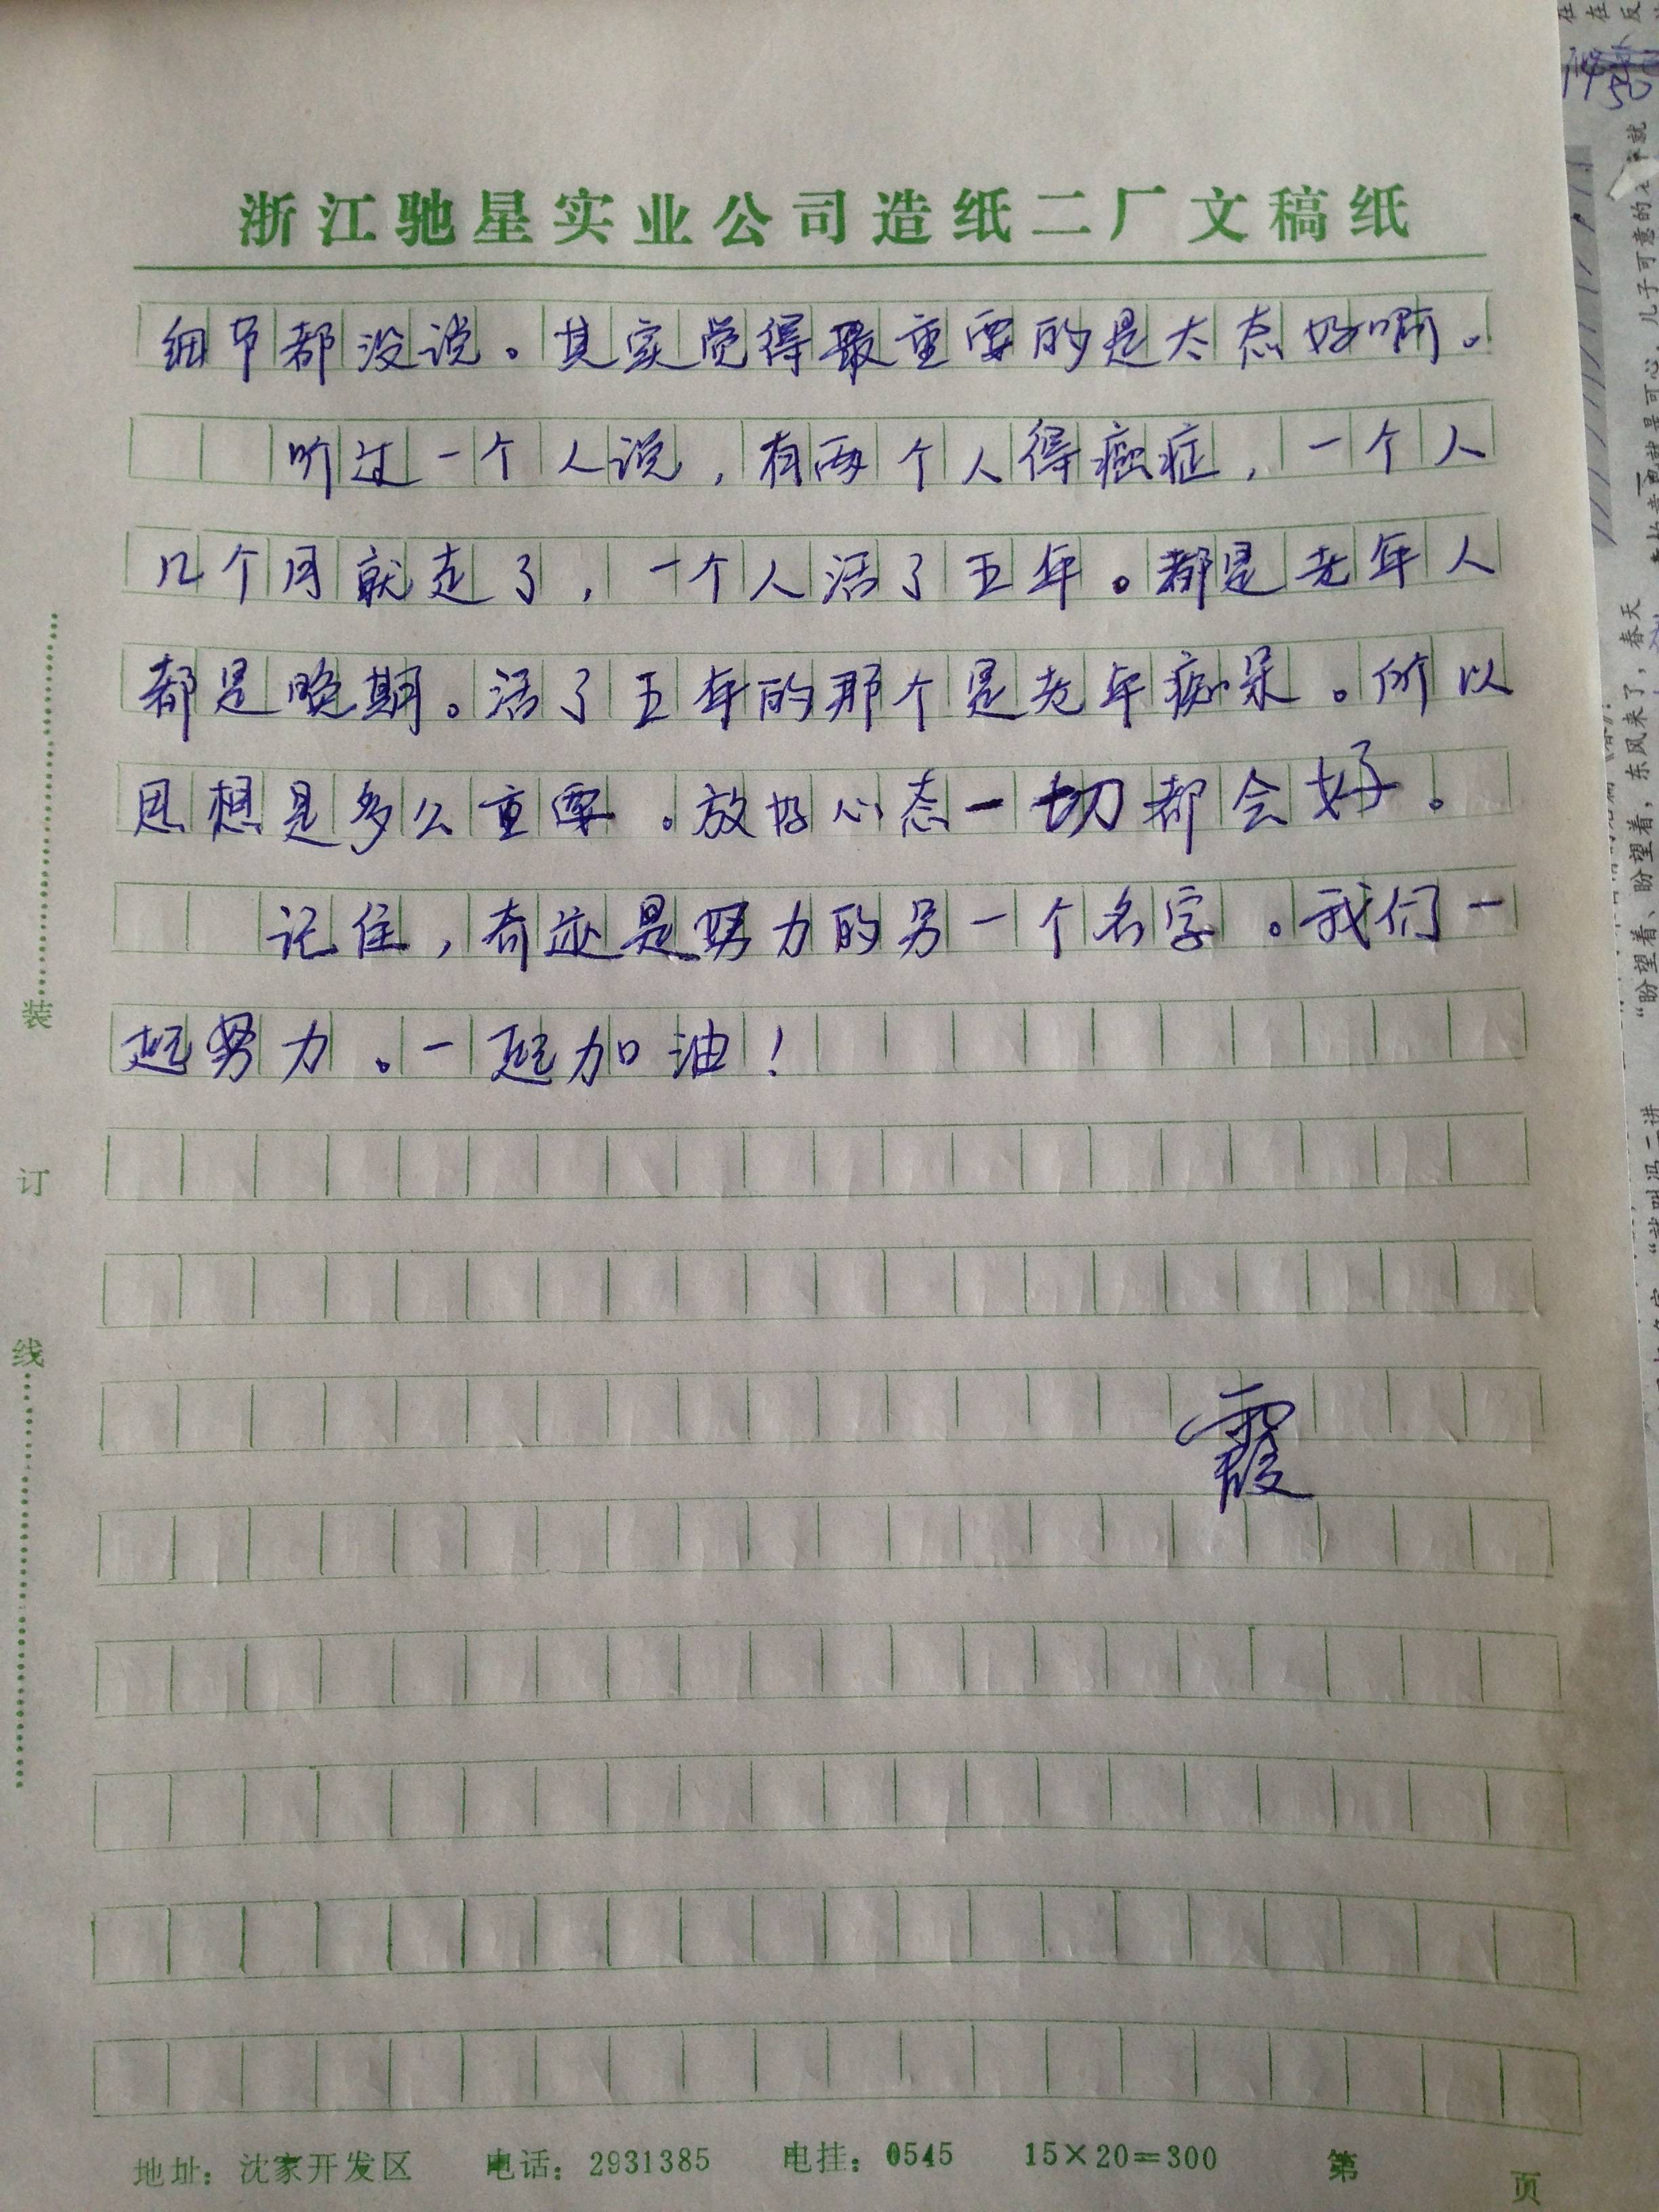 浙江驰星实业公司造纸二厂文稿纸
细节都没说。其实觉得最重要的是太态好啊。
听过一个人说，有两个人得癌症，一个人
几个月就走了，一个人活了五年。都是老年人
都是晚期。活了五年的那个是老年痴呆。所以
思想是多么重要。放好心态一切都会好。
记住，奇迹是努力的另一个名字。我们一
起努力。一起加油！
霞
装
订
线
地址：沈家开发区 电话：2931385 电挂：0545 15×20=300 第 页
“盼望着、盼望着，东风来了，春天